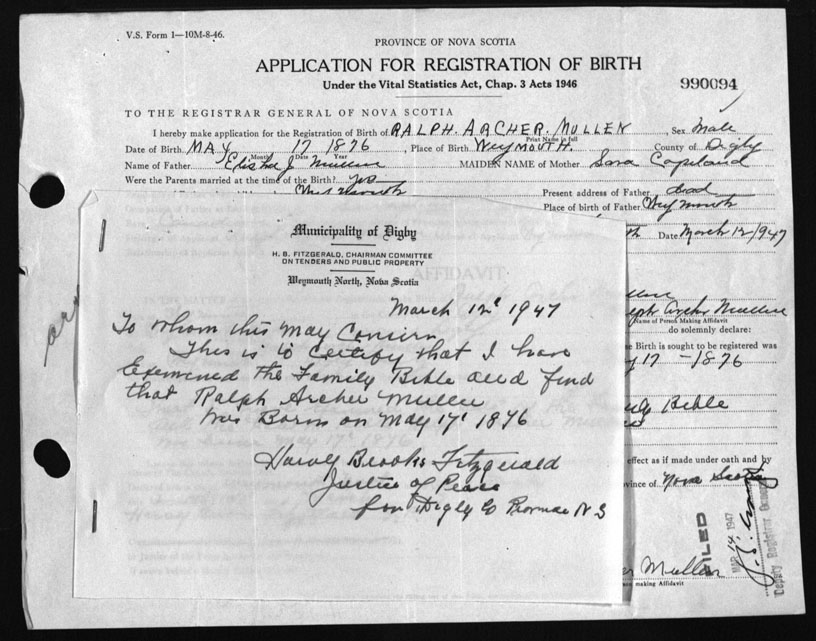 V.S. Form 1—10M-8-46.
PROVINCE OF NOVA SCOTIA
APPLICATION FOR REGISTRATION OF BIRTH
Under the Vital Statistics Act, Chap. 3 Acts 1946
990094
TO THE REGISTRAR GENERAL OF NOVA SCOTIA
I hereby make application for the Registration of Birth of RALPH. ARCHER. MULLEN, Sex Male
Print Name in full
Date of Birth MAY 17 1876, Place of Birth WEYMOUTH. County of Digby
Month Date Year
Name of Father Elisha J Mullen MAIDEN NAME of Mother Sara Copeland
Were the Parents married at the time of the Birth? yes Present address of Father dead
Weymouth Place of birth of Father Weymouth
Date March 12/1947
Municipality of Digby
H. B. FITZGERALD, CHAIRMAN COMMITTEE
ON TENDERS AND PUBLIC PROPERTY
Weymouth North, Nova Scotia
AFFIDAVIT
March 12' 1947
To whom this May Concern
This is to certify that I have
Examined the Family Bible and find
that Ralph Archer Mullen
was Born on May 17' 1876
Harold Brooks Fitzgerald
Justice of Peace
for Digby Co Province N S
Ralph Archer Mullen
Name of Person Making Affidavit
do solemnly declare:
Birth is sought to be registered was
17 - 1876
Bible
effect as if made under oath and by
Province of Nova Scotia
FILED
MAR 14 1947
Deputy Registrar General
Mullen
making Affidavit